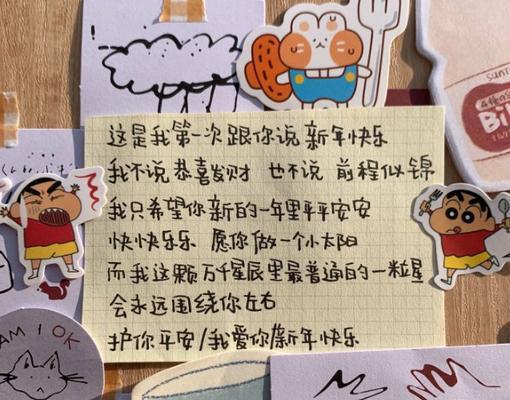 这是我第一次跟你说 新年快乐
我不说恭喜发财 也不说 前程似锦
我只希望你新的一年里平平安安
快快乐乐 愿你做一个小太阳
而我这颗万千星辰里最普通的一粒星
会永远围绕你左右
护你平安/我爱你/新年快乐
AM I OK